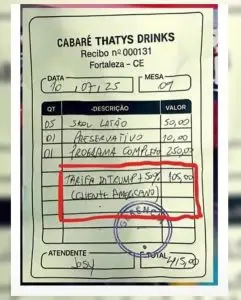 CABARÉ THATYS DRINKS
Recibo nº 000131
Fortaleza - CE
DATA MESA
10,07,25 01
QT -DESCRIÇÃO VALOR
05 SKOL LATÃO 50,00
01 PRESERVATIVO 10,00
01 PROGRAMA COMPLETO 250,00
TARIFA D.TRUMP + 50% 105,00
(CLIENTE AMERICANO)
ATENDENTE TOTAL
bsy 415,00